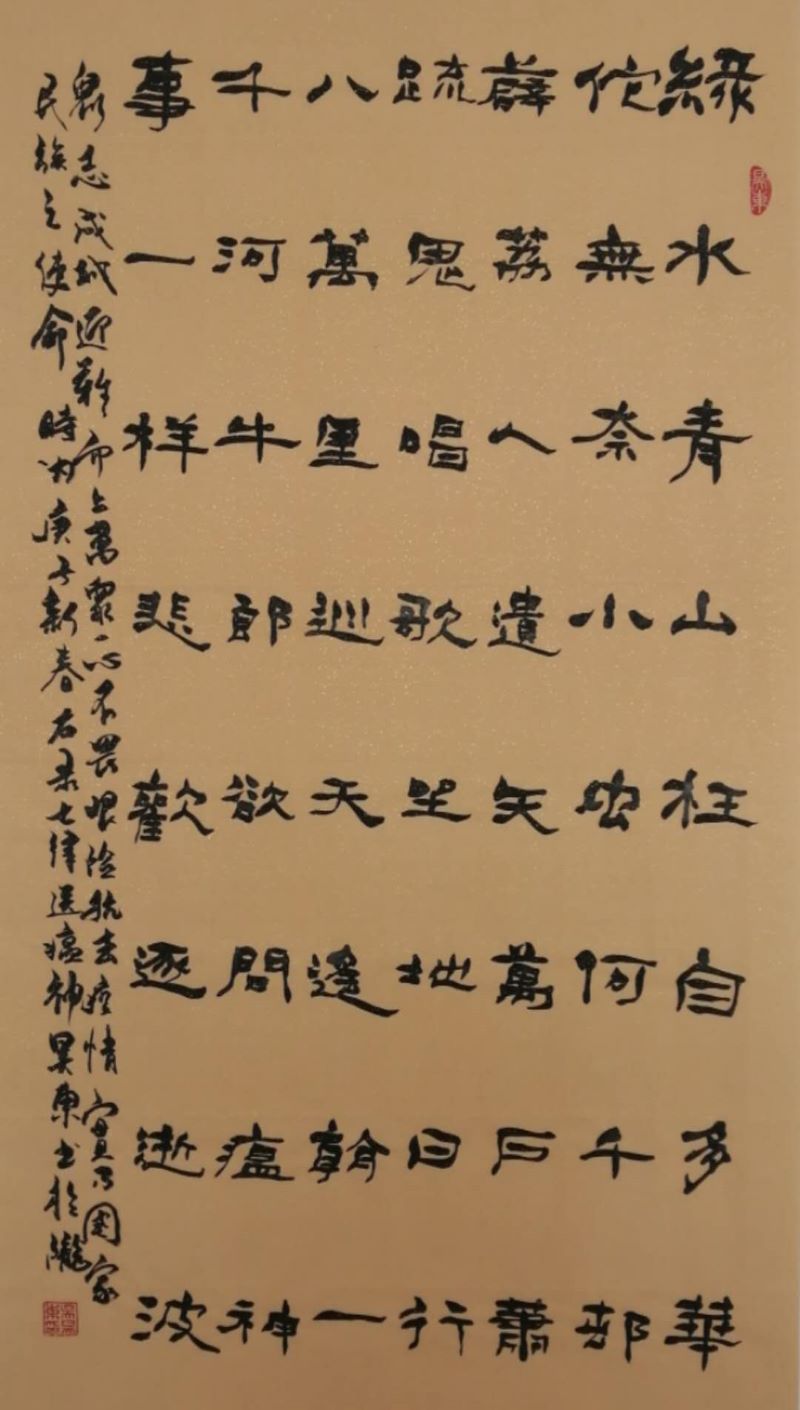 緑水青山枉自多華
佗無奈小虫何千邨
薜荔人遺矢萬戶蕭
疏鬼唱歌坐地日行
八萬里巡天遙看一
千河牛郎欲問瘟神
事一样悲歡逐逝波
衆志成城迎難而上萬眾一心不畏艰險抗击疫情實乃國家
民族之使命時为庚子新春右录七律送瘟神昊東书於隴
昊東